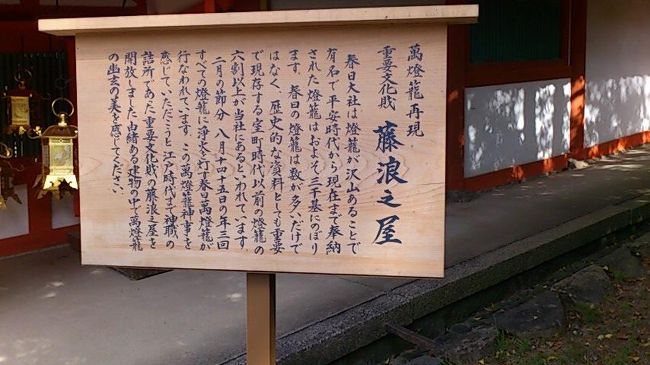 萬燈籠再現
重要文化財 藤浪之屋
春日大社は燈籠が沢山あることで
有名で平安時代から現在まで奉納
された燈籠はおよそ三千基にのぼり
ます。春日の燈籠は数が多いだけで
はなく、歴史的な資料としても重要
で現存する室町時代以前の燈籠の
六割以上が当社にあるといわれてゐます。
二月の節分 八月十四・十五日の年三回
すべての燈籠に浄火を灯す春日萬燈籠が
行なわれてゐます。この萬燈籠神事を
感じていただこうと江戸時代まで神職の
詰所であった重要文化財の藤浪之屋を
開放しました 由緒ある建物の中で萬燈籠
の幽玄の美を感じてください。